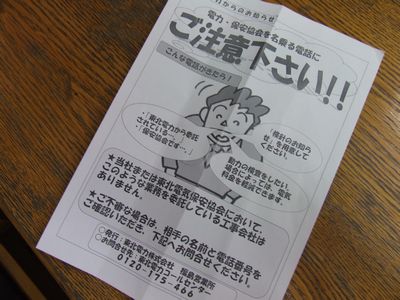 力からのお知らせ
電力・保安協会を名乗る電話に
ご注意下さい!!
こんな電話がきたら!
・「東北電力から委託
されている…。」
・「保安協会です…。」
「検針のお知ら
せ」を用意して
ください。
動力の検査をしたい。
場合によっては、電気
料金を軽減できます。
★当社または東北電気保安協会において、
このような業務を委託している工事会社は
ありません。
★ご不審な場合は、相手の名前と電話番号を
ご確認いただき、下記へお問合せください。
○発行:東北電力株式会社 福島営業所
○お問合せ先:東北電力コールセンター
0120-175-466